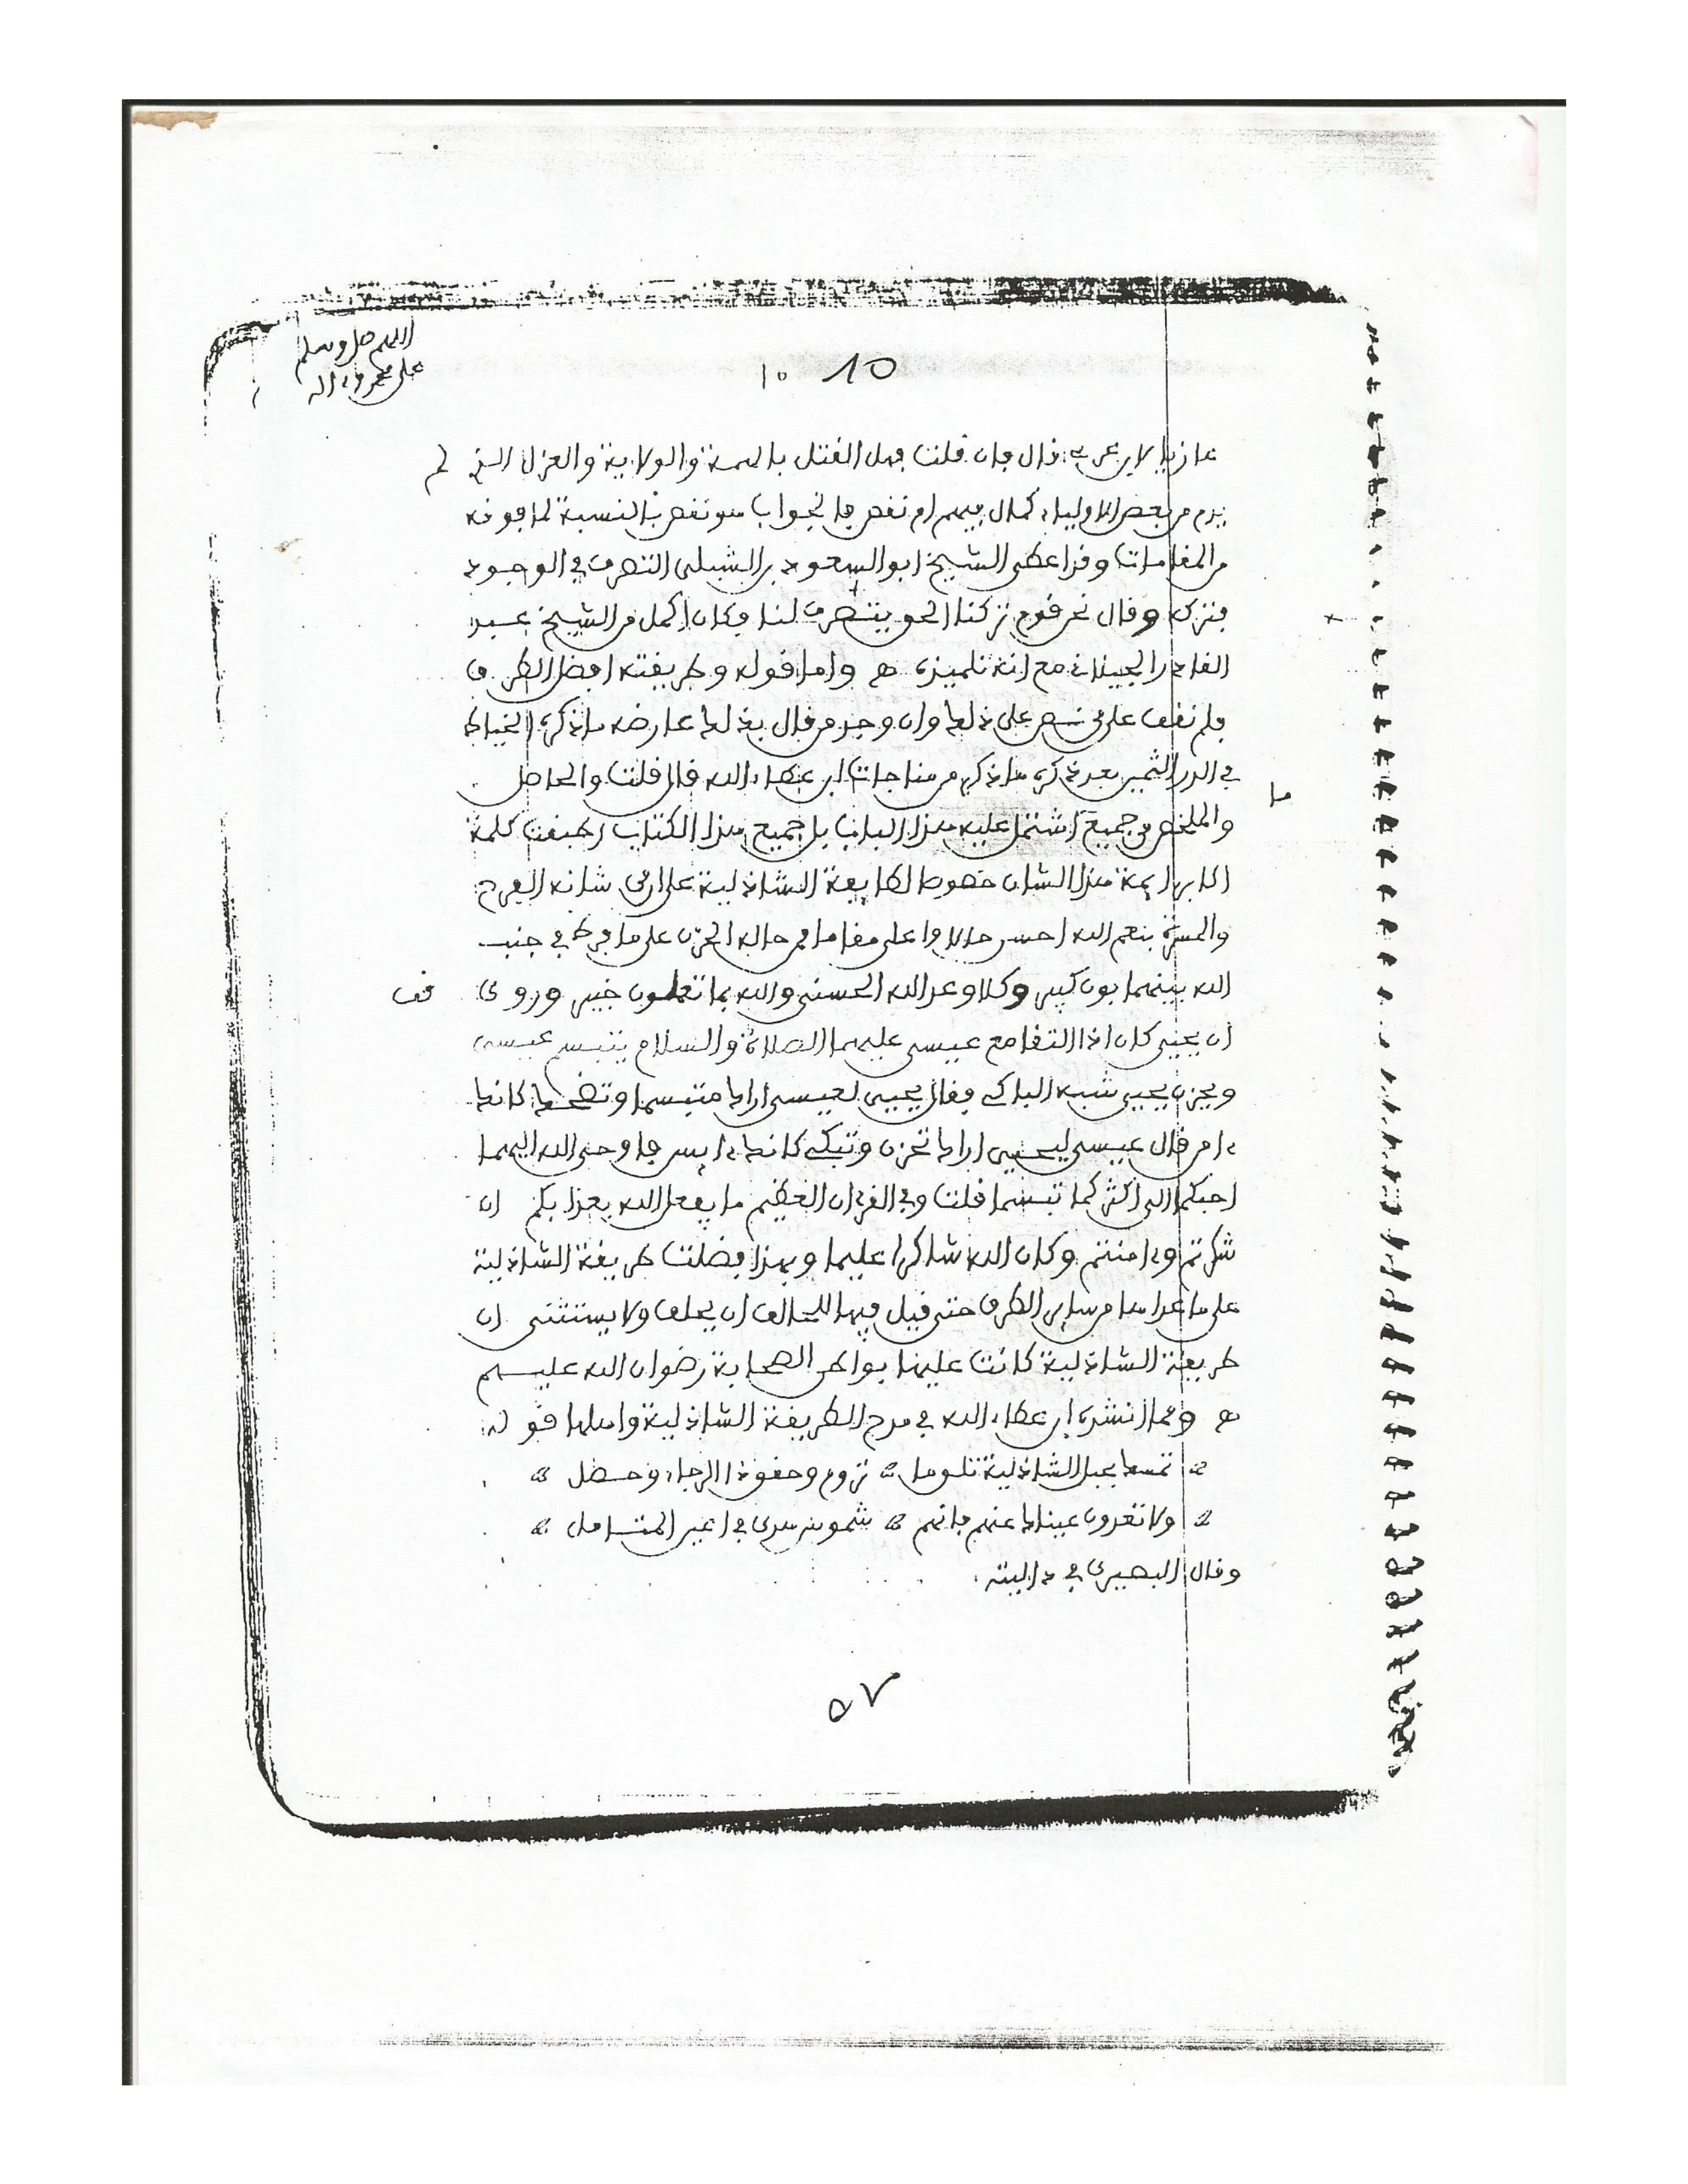 اللهم صل وسلم
على محمد وءاله
10 ١٠
عازيا لابن عربي قال فإن قلت فهل القتل بالهمة والولاية والعزل الذي لم
يرد من بعض الاولياء كمال فيهم ام نقص فالجواب هو نقص بالنسبة لما فوقه
من المقامات وقد اعطى الشيخ ابو السعود بن الشبلي التصرف في الوجود
فتركه وقال نحن قوم تركنا الحق يتصرف لنا فكان اكمل من الشيخ عبد
القادر الجيلاني مع انه تلميذه هـ واما قوله وطريقته افضل الطرق
فلم نقف على نص على ذلك وان وجد من قال بذلك عارضه ما ذكره الخياط
في الدر الثمين بعد ذكره ما ذكر من مناجات ابن عطاء الله قال قلت والحاصل
ما
والملخص من جميع اشتمل عليه هذا الباب بل جميع هذا الكتاب اطبقت كلمة
اكابر ايمة هذا الشان خصوصا طايفة الشاذلية على ان من شانه الفرح
والمسرة بنعم الله احسن حالا واعلى مقاما من حاله الحزن على ما فرط في جنب
الله بينهما بون كبير وكلا وعد الله الحسنى والله بما تعملون خبير وروي قف
ان يحيى كان اذا التقا مع عيسى عليهما الصلاة والسلام يتبسم عيسى
ويحزن يحيى شبه الباكي فقال يحيى لعيسى اراك متبسما وتضحك كانك
ءامن قال عيسى ليحيى اراك تحزن وتبكي كانك ءايس فاوحى الله اليهما
احبكما الي اكثركما تبسما قلت وفي القرءان العظيم ما يفعل الله بعذابكم ان
شكرتم وءامنتم وكان الله شاكرا عليما وبهذا فضلت طريقة الشاذلية
على ما عداها من ساير الطرق حتى قيل فيها للحالف ان يحلف ولا يستثنى ان
طريقة الشاذلية كانت عليها بواطن الصحابة رضوان الله عليهم
هـ ومما انشده ابن عطاء الله في مدح الطريقة الشاذلية واهلها قوله
تمسك بحبل الشاذلية تلق ما تروم وحقق ذا الرجاء وحصل
ولا تعدون عيناك عنهم فانهم شموس هدى في اعين المتامل
وقال البصيري في داليته
٥٧